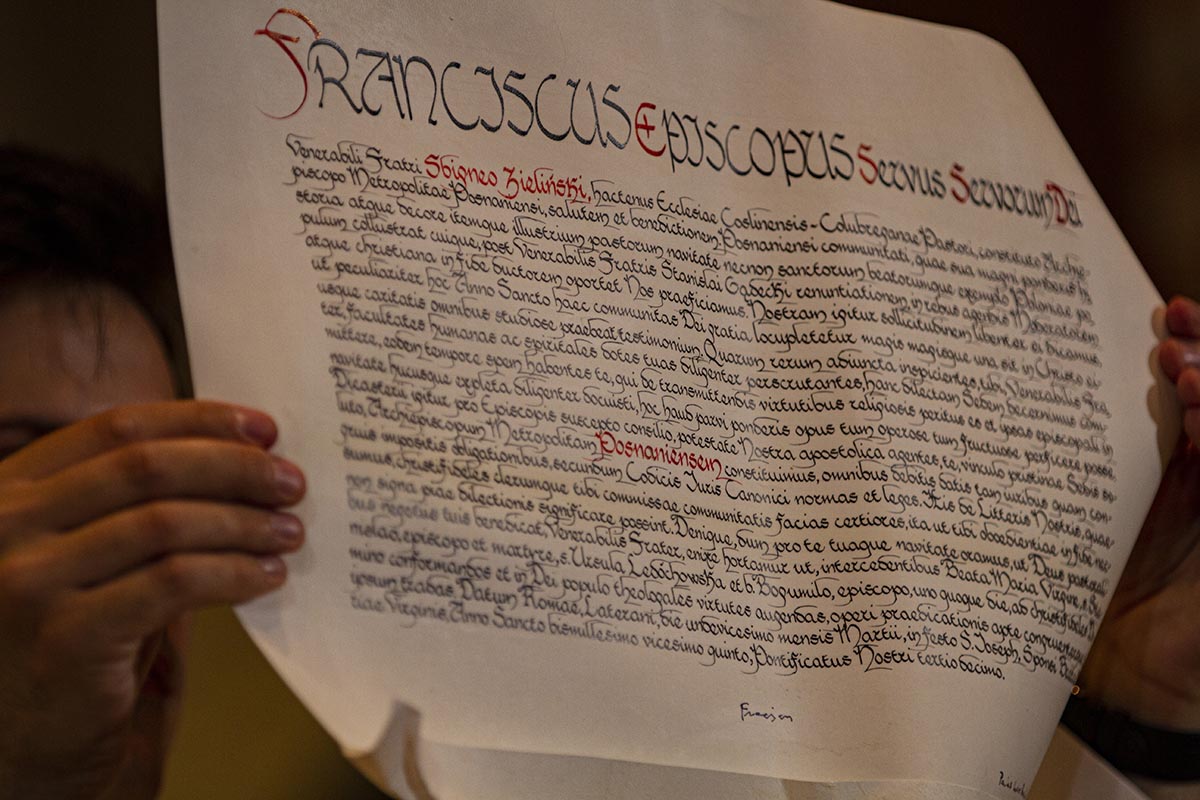 FRANCISCUS EPISCOPUS Servus Servorum Dei
Venerabili Fratri Sbigneo Zieliński, hactenus Ecclesiae Coslinensis-Colubreganae Pastori, constituto Archie-
piscopo Metropolitae Posnaniensi, salutem et benedictionem. Posnaniensi communitati, quae sua magni ponderis hi-
storia atque decore itemque illustrium pastorum navitate necnon sanctorum beatorumque exemplo Poloniae po-
pulum collustrat cuique, post Venerabilis Fratris Stanislai Gądecki renuntiationem, in rebus agendis Moderatorem
atque christiana in fide ductorem oportet Nos praeficiamus. Nostram igitur sollicitudinem libenter ei dicamus,
ut peculiariter hoc Anno Sancto haec communitas Dei gratia locupletetur magis magisque una sit in Christo ei-
usque caritatis omnibus studiose praebeat testimonium. Quarum rerum adiuncta inspicientes, tibi, Venerabilis Fra-
ter, facultates humanas ac spiritales dotes tuas diligenter perscrutantes, hanc dilectam Sedem decernimus com-
mittere, eodem tempore spem habentes te, qui de transmittendis virtutibus religiosis peritus es et, ipsas episcopali in
navitate hucusque expleta diligenter docuisti, hoc haud parvi ponderis opus tum operose tum fructuose perficere posse.
Dicasterii igitur pro Episcopis suscepto consilio, potestate Nostra apostolica agentes, te, vinculo pristinae Sedis so-
luto, Archiepiscopum Metropolitam Posnaniensem constituimus, omnibus debitis datis tam iuribus quam con-
gruis impositis obligationibus, secundum Codicis Iuris Canonici normas et leges. Hisce de Litteris Nostris, quae-
sumus, christifideles clerumque tibi commissae communitatis facias certiores, ita ut tibi oboedientiae in fide nec-
non signa piae dilectionis significare possint. Denique, dum pro te tuaque navitate oramus, ut Deus pastorali-
bus negotiis tuis benedicat, Venerabilis Frater, enixe hortamur ut, intercedentibus Beata Maria Virgine, s.
melao, episcopo et martyre, s. Ursula Ledóchowska et b. Bogumilo, episcopo, uno quoque die, ad christifideles
mino conformandos et in Dei populo theologales virtutes augendas, operi praedicationis apte congruenter
ipsum tradas. Datum Romae, Laterani, die undevicesimo mensis Martii, in festo S. Ioseph, Sponsi Beatae
riae Virginis, Anno Sancto bismillesimo vicesimo quinto, Pontificatus Nostri tertio decimo.